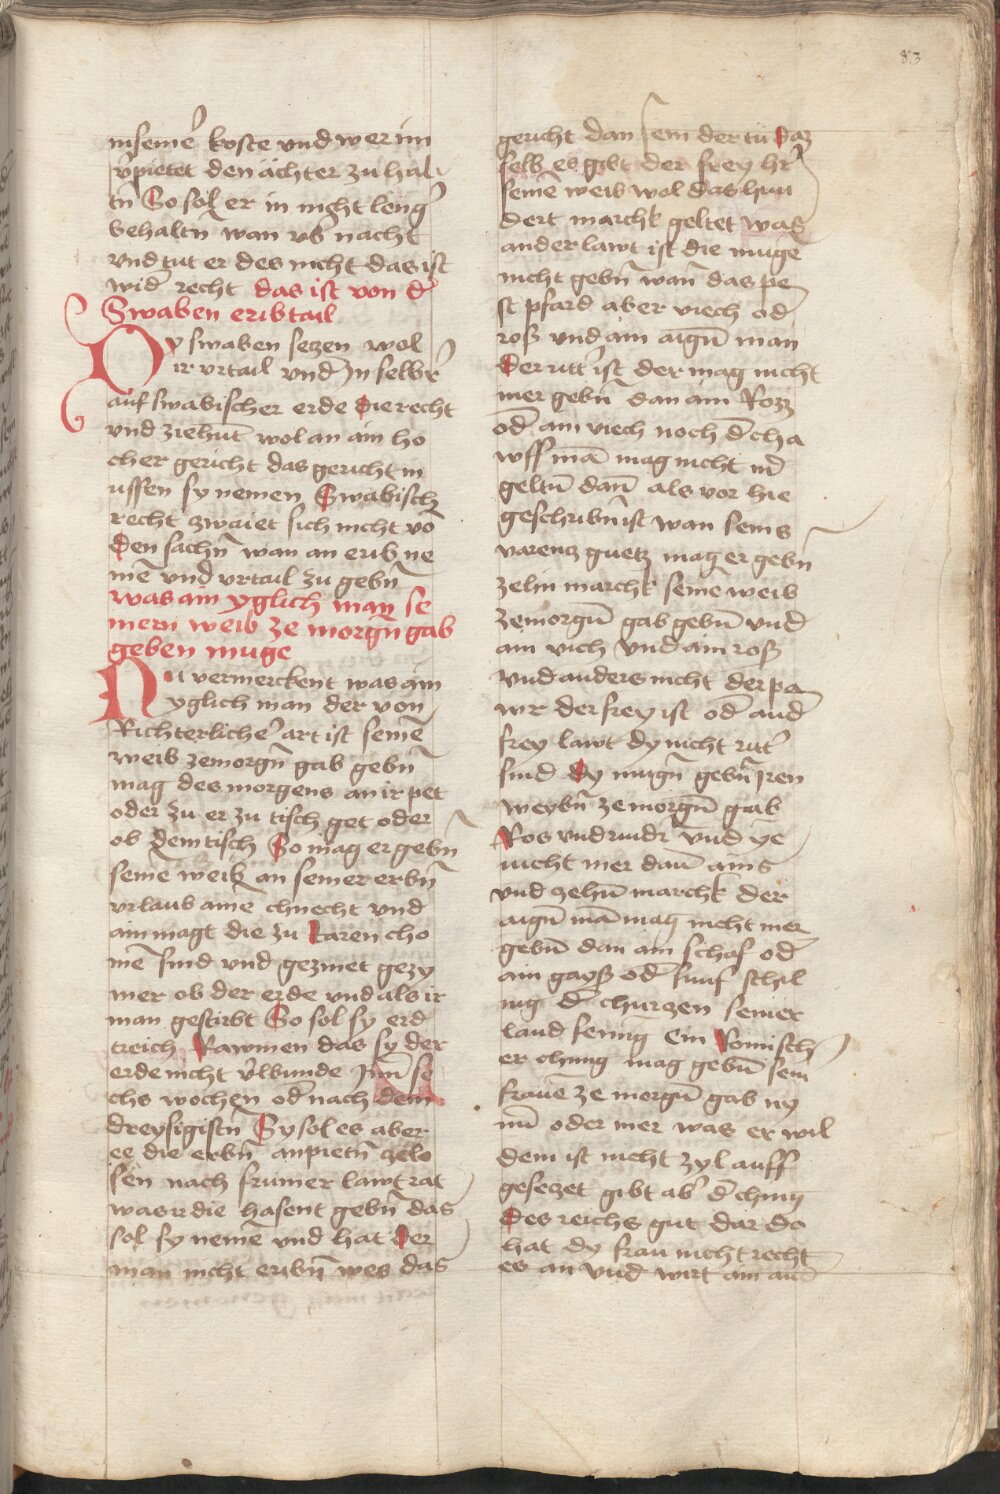 83
in seineᷣ koste und wer im
v̄pietet den ächter zu hal
tn̄ So sol er in nicht lengᷣ
behaltn̄ wan vbᷣ nacht
vnd tut er des nicht das ist
widᷣ recht das ist von dᷣ
Swaben eribtail
Dy swaben seczen wol
ir vrtail vnd̄ Jn selbᷣ
auf swabischer erde die recht
vnd ziehnt̄ wol an ain ho
cher gericht das gericht m
ussen sy nemen Swabisch
recht zwaiet sich nicht vō
den sachn̄ wan an erib ne
mē vnd vrtail zu gebn̄
was ain yglich man se
inem weib ze morgn̄ gab
geben muge
Nu vermerckent was ain
yglich man der von
Richterlicheᷣ art ist seinē
weib zemorgn̄ gab gebn̄
mag des morgens an ir pet
oder zu er zu tisch get oder
ob dem tisch So mag er gebn̄
seinē weib an seiner erbn̄
vrlaub aine chnecht vnd
ain magt die zu Jaren cho
mē sind vnd gezinet gezy
mer ob der erde vnd als ir
man gestirbt So sol sy erd
treich Rawmen das sy der
erde nicht v̄lbunde Jnn̄ se
chs wochen odᷣ nach dem
dreysigistn̄ Sy sol es aber
ee die erbn̄ anpietn̄ zelo
sen nach frumer lawt rat
was ir die hasent gebn̄ das
sol sy nemē vnd hat der
man nicht eribn̄ wes das
gericht dan sein der tü daz
selb es gibt der frey hᷣr
seinē weib wol das hun
dert marchk geltet was
ander lawt ist die muge
nicht gebn̄ wan̄ das pe
st pfard aber viech odᷣ
roß vnd ain aign̄ man
der rittᷣ ist der mag nicht
mer gebn̄ dan ain Rozz
odᷣ ain viech noch dᷣ cha
wff mā mag nicht mᷣ
geltn̄ dan̄ als vor hie
geschribn̄ ist wan seins
varencz guetz mag er gebn̄
zehn marchk seine weib
zemorgn̄ gab gebn̄ vnd
ain vich vnd ain roß
vnd anders nicht der pa
wr der frey ist odᷣ andᷣ
frey lawt dy nicht rittᷣ
sind dy mugn̄ gebn̄ Jren
weybn̄ ze morgn̄ gab
Ros vnd rindr vnd ye
nicht mer dan̄ ains
vnd zehn̄ marchk der
aign̄ mā mag nicht mer
gebn̄ dan ain schaf odᷣ
ain gayß odᷣ funf schil
ing dᷣ churczen seiner
land fening Ein Romisch
er chunig mag gebn̄ sein
frauē ze morgn̄ gab my
nn̄ oder mer was er wil
dem ist nicht zyl auff
geseczet gibt abᷣ dᷣ chunig
des reichs gut dar do
hat dy frau nicht recht
es an vnd wirt ain andᷣ